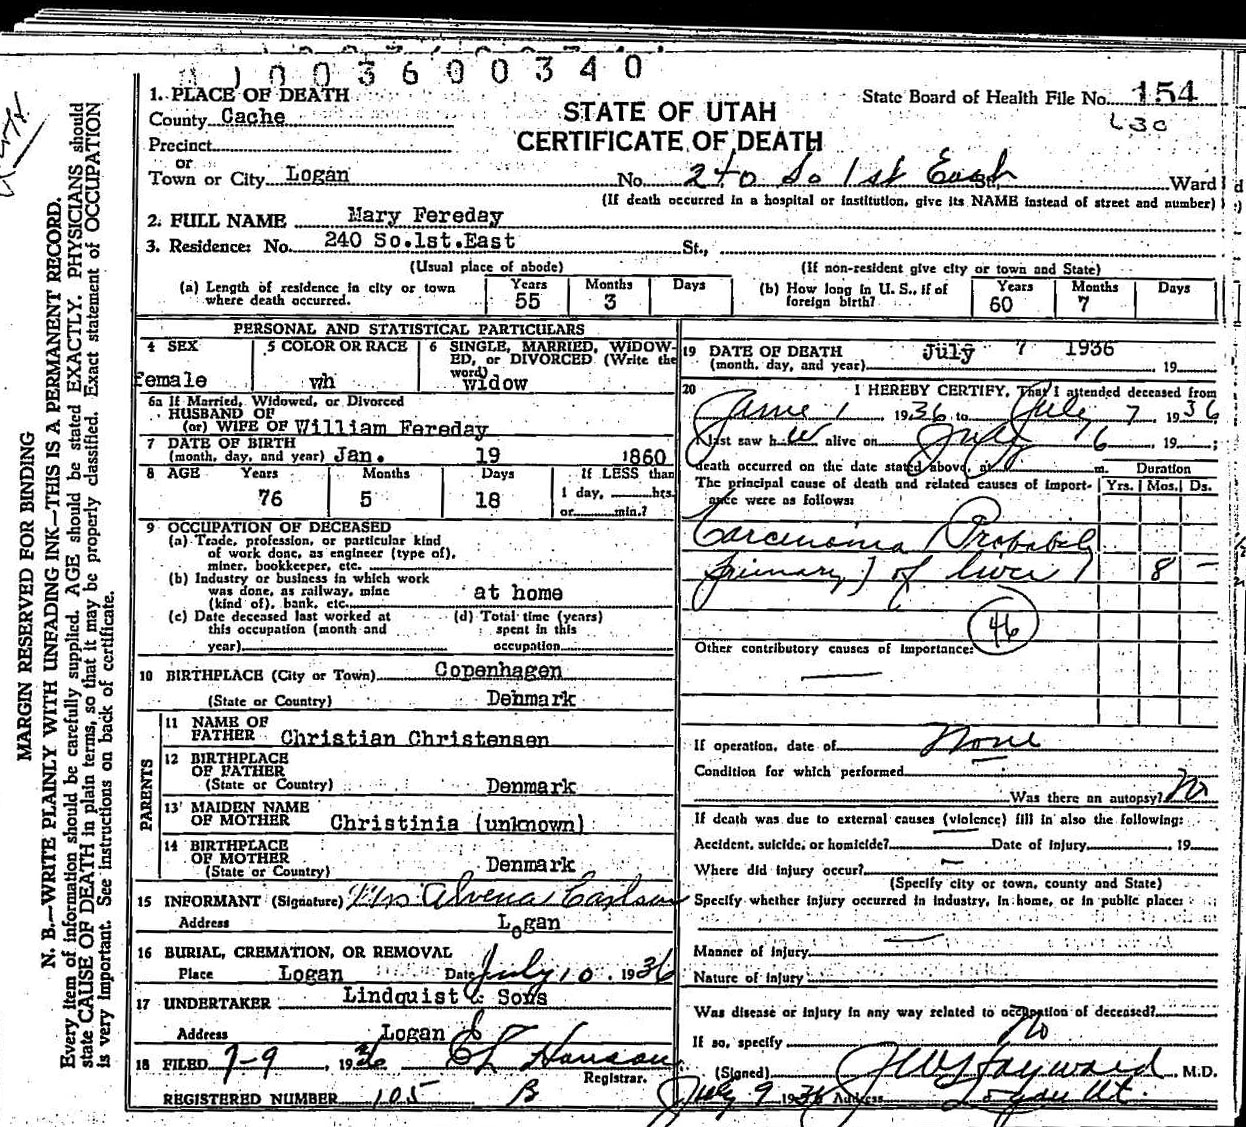 1003600340
1. PLACE OF DEATH
STATE OF UTAH
CERTIFICATE OF DEATH
State Board of Health File No. 154
630
County Cache
Precinct
or
Town or City Logan No. 240 So 1st East St., Ward
(If death occurred in a hospital or institution, give its NAME instead of street and number)
2. FULL NAME Mary Fereday
3. Residence: No. 240 So.1st.East St.,
(Usual place of abode) (If non-resident give city or town and State)
(a) Length of residence in city or town where death occurred. Years 55 Months 3 Days
(b) How long in U. S., if of foreign birth? Years 60 Months 7 Days
PERSONAL AND STATISTICAL PARTICULARS
4 SEX female
5 COLOR OR RACE wh
6 SINGLE, MARRIED, WIDOWED, or DIVORCED (Write the word) widow
6a If Married, Widowed, or Divorced
HUSBAND OF
(or) WIFE OF William Fereday
7 DATE OF BIRTH
(month, day, and year) Jan. 19 1860
8 AGE Years 76 Months 5 Days 18 If LESS than 1 day, hrs. or min.?
9 OCCUPATION OF DECEASED
(a) Trade, profession, or particular kind
of work done, as engineer (type of),
miner, bookkeeper, etc.
(b) Industry or business in which work
was done, as railway, mine
(kind of), bank, etc. at home
(c) Date deceased last worked at
this occupation (month and
year)
(d) Total time (years)
spent in this
occupation
10 BIRTHPLACE (City or Town) Copenhagen
(State or Country) Denmark
PARENTS
11 NAME OF
FATHER Christian Christensen
12 BIRTHPLACE
OF FATHER
(State or Country) Denmark
13 MAIDEN NAME
OF MOTHER Christinia (unknown)
14 BIRTHPLACE
OF MOTHER
(State or Country) Denmark
15 INFORMANT (Signature) Mrs Alvena Carlson
Address Logan
16 BURIAL, CREMATION, OR REMOVAL
Place Logan Date July 10. 1936
17 UNDERTAKER Lindquist & Sons
Address Logan
18 FILED 7-9, 1936 Hanson
Registrar.
REGISTERED NUMBER 105 B
19 DATE OF DEATH July 7 1936
(month, day, and year) 19
20 I HEREBY CERTIFY, That I attended deceased from
June 1 1936 to July 7 1936
I last saw her alive on July 6 19 ;
death occurred on the date stated above, at m.
Duration
The principal cause of death and related causes of importance were as follows: Yrs. Mos. Ds.
Carcinoma (Probably
primary) of liver 8 -
46
Other contributory causes of importance:
If operation, date of None
Condition for which performed
Was there an autopsy? No
If death was due to external causes (violence) fill in also the following:
Accident, suicide, or homicide? Date of injury 19
Where did injury occur?
(Specify city or town, county and State)
Specify whether injury occurred in industry, in home, or in public place:
Manner of Injury
Nature of Injury
Was disease or injury in any way related to occupation of deceased?
If so, specify No
(Signed) J W Hayward, M.D.
July 9 1936 Address Logan Ut.
MARGIN RESERVED FOR BINDING
N. B.—WRITE PLAINLY WITH UNFADING INK—THIS IS A PERMANENT RECORD.
Every item of information should be carefully supplied. AGE should be stated EXACTLY. PHYSICIANS should
state CAUSE OF DEATH in plain terms, so that it may be properly classified. Exact statement of OCCUPATION
is very important. See instructions on back of certificate.